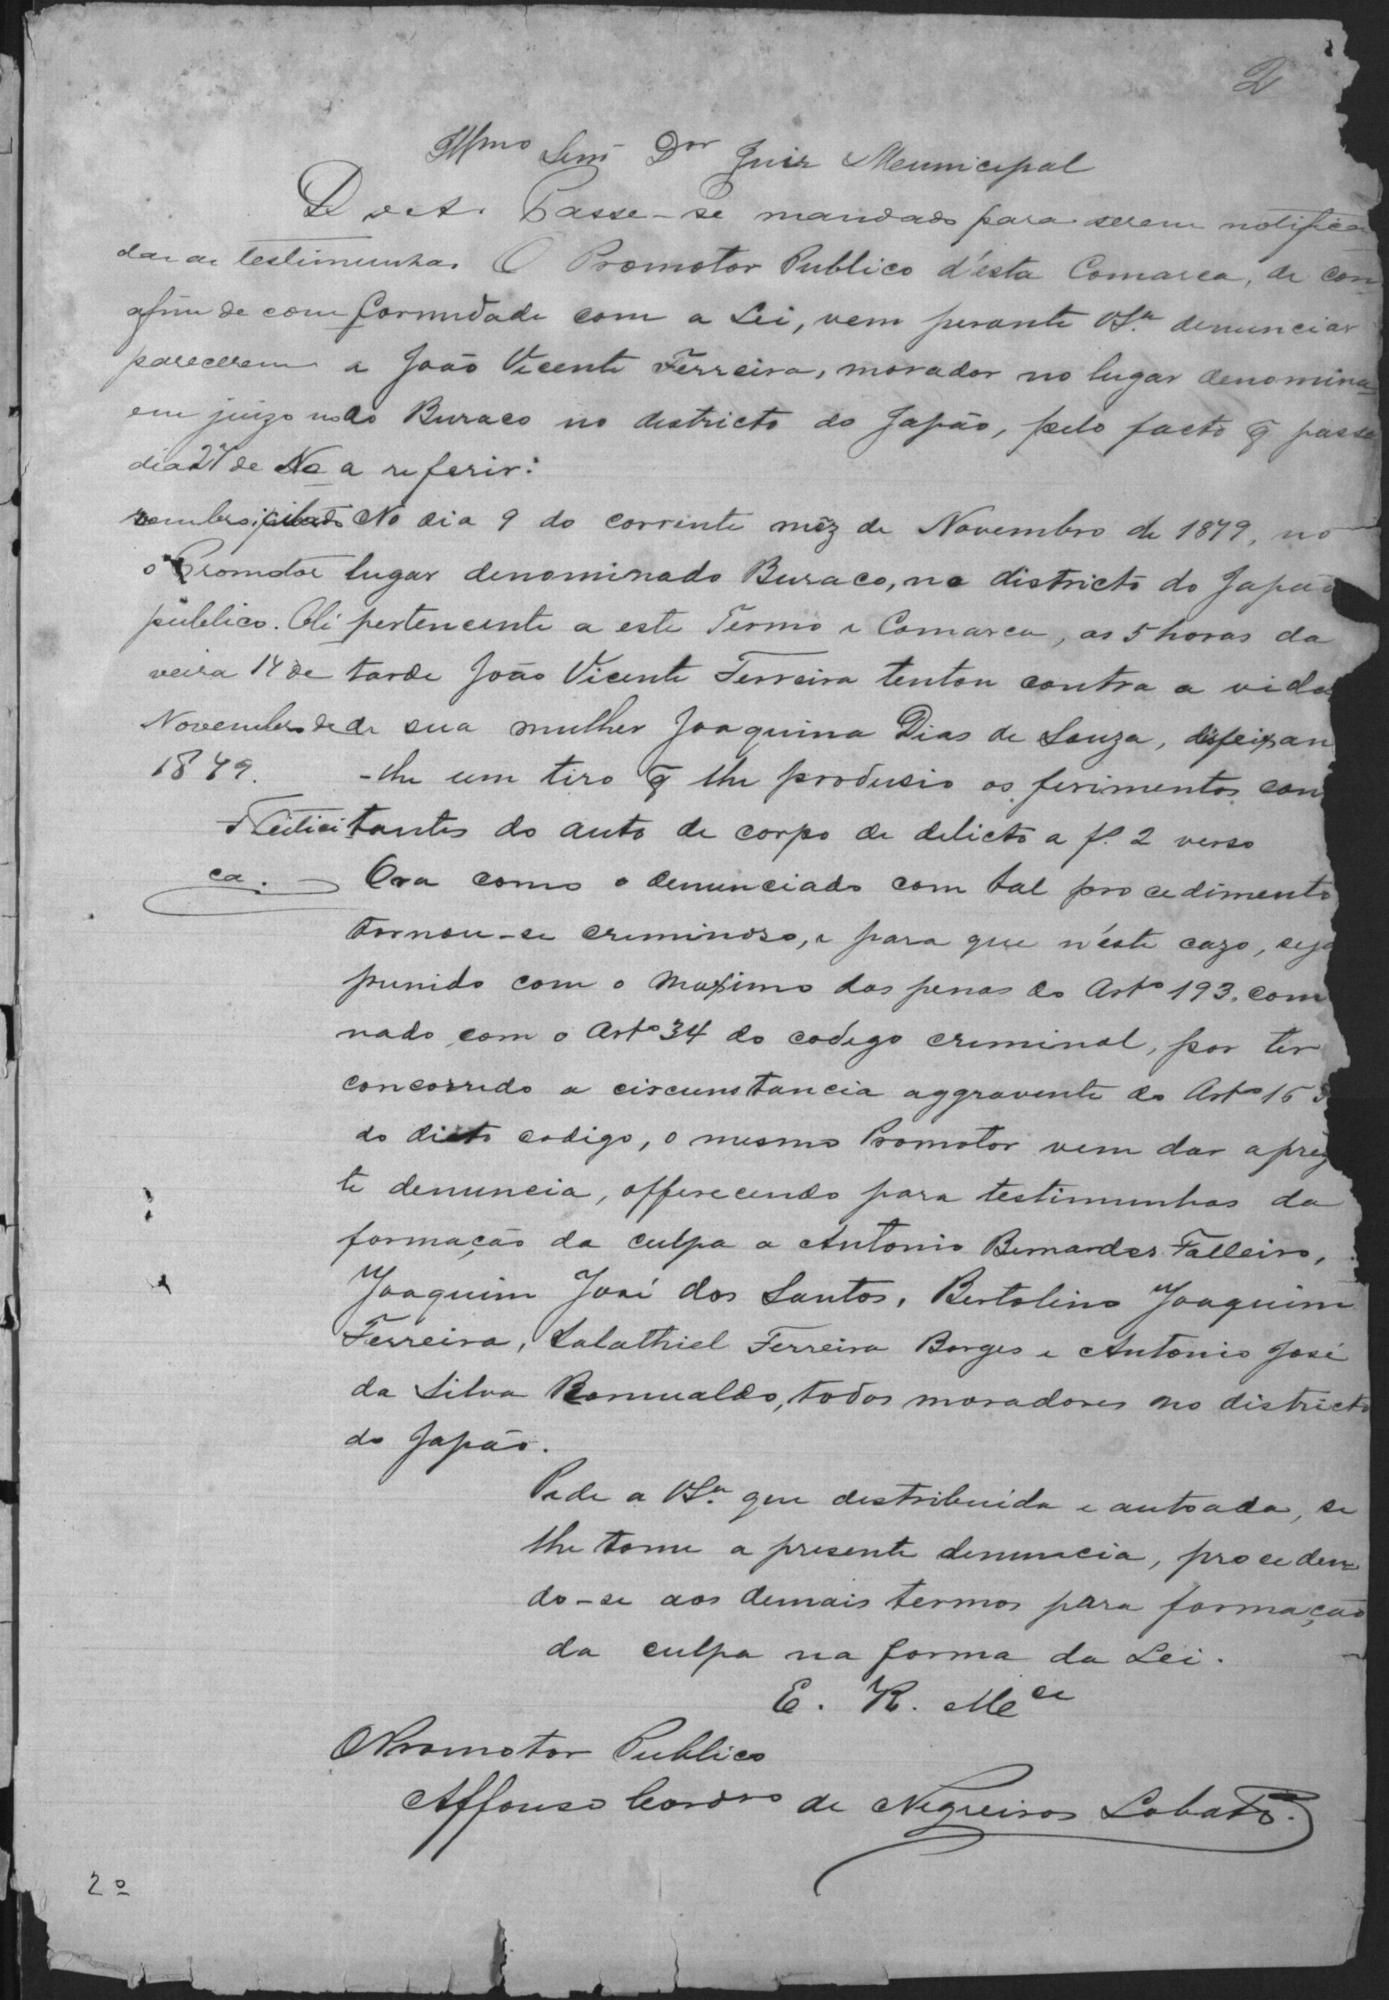 2
Illmo Senr Dor Juiz Municipal
D. e A. Passe-se mandado para serem notifica
das as testimunhas O Promotor Publico d'esta Comarca, de con
afim de com formidade com a Lei, vem perante VSa. denunciar
parecerem a João Vicente Ferreira, morador no lugar denomina
em juizo no do Buraco no districto do Japão, pelo facto q̃ passa
dia 27 de No a referir:
vembro, citado No dia 9 do corrente mêz de Novembro de 1879, no
o Promotor lugar denominado Buraco, no districto do Japão
publico. Oli pertencente a este Termo e Comarca, as 5 horas da
veira 14 de tarde João Vicente Ferreira tentou contra a vida
Novembro de de sua mulher Joaquina Dias de Souza, disfeixan
1879. -lhe um tiro q̃ lhe produsio os ferimentos cons
tantes do auto de corpo de delicto a f. 2 verso
ca. Ora como o denunciado com tal procedimento
tornou-se criminoso, e para que n'este cazo, seja
punido com o maximo das penas do Arto 193, com
nado com o Arto 34 do codigo criminal, por ter
concorrido a circunstancia aggravente do Arto 16
do dicto codigo, o mesmo Promotor vem dar a prez
te denuncia, offerecendo para testimunhas da
formação da culpa a Antonio Bernardes Falleiro,
Joaquim José dos Santos, Bertolino Joaquim
Ferreira, Salathiel Ferreira Borges e Antonio José
da Silva Romualdo, todos moradores no districto
do Japão.
Pede a VSa. que destribuida e autoada, se
lhe tome a presente denuncia, proceden
do-se aos demais termos para formação
da culpa na forma da Lei.
E. R. Mce
O Promotor Publico
Affonso Cordro de Negreiros Lobato.
2o